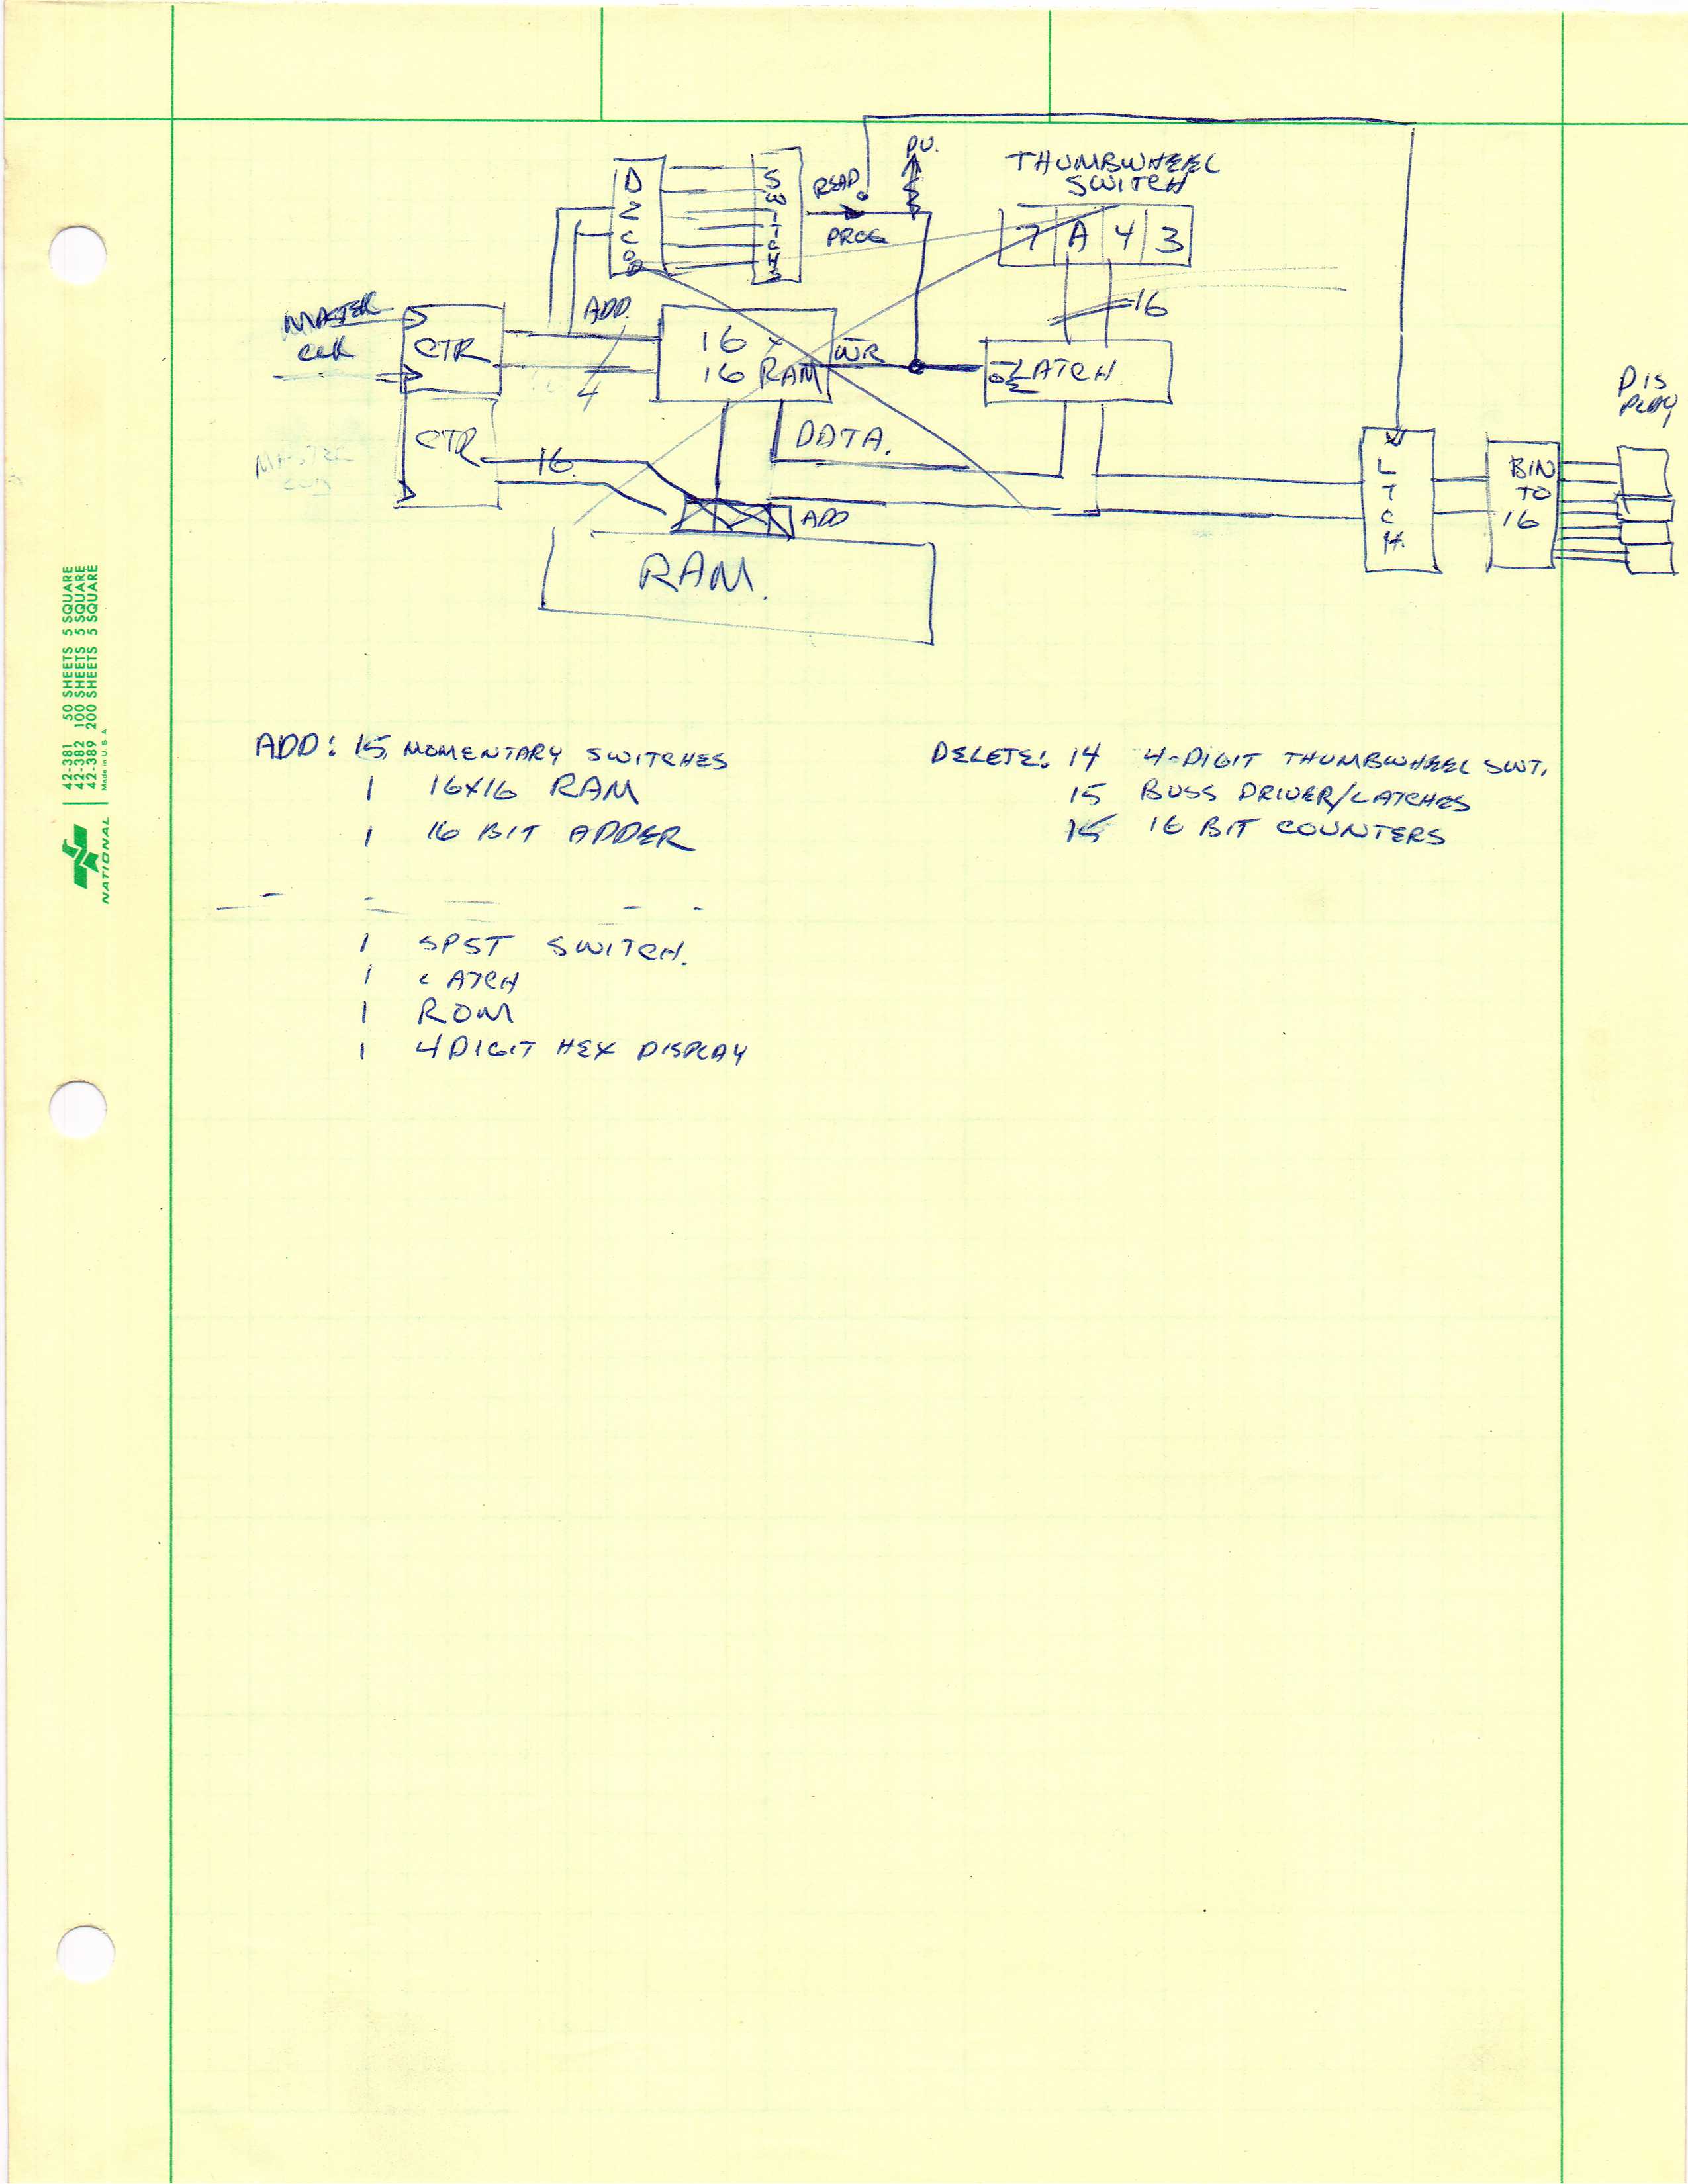 PU.
THUMBWHEEL
SWITCH
DECOD
SWITCH
READ
PROG
7 A 4 3
MASTER
CLK
CTR
ADD.
4
16 x
16 RAM
WR
16
OE
LATCH
DIS
PLAY
CTR
16
DATA.
MASTER
ADD
RAM.
LTCH.
BIN
TO
16
42-381 50 SHEETS 5 SQUARE
42-382 100 SHEETS 5 SQUARE
42-389 200 SHEETS 5 SQUARE
Made in U.S.A.
NATIONAL
ADD: 15 MOMENTARY SWITCHES
1 16X16 RAM
1 16 BIT ADDER
1 SPST SWITCH.
1 LATCH
1 ROM
1 4 DIGIT HEX DISPLAY
DELETE: 14 4-DIGIT THUMBWHEEL SWT.
15 BUSS DRIVER/LATCHES
15 16 BIT COUNTERS